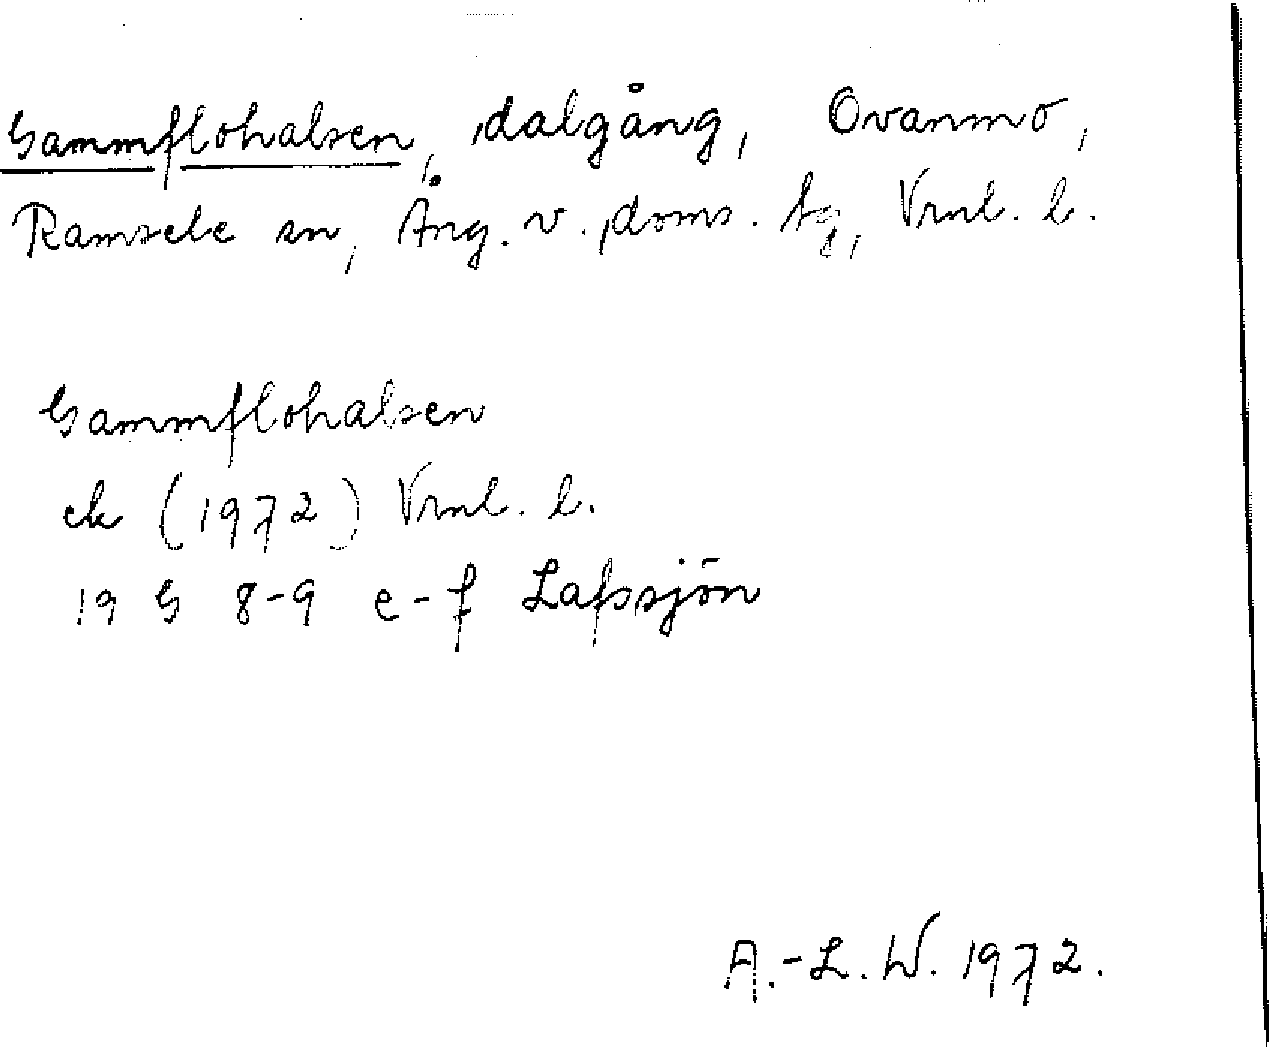 Gammflohalsen, dalgång, Ovanmo,
Ramsele sn, Ång. v. doms. tg, Vrnl. l.
Gammflohalsen
ek (1972) Vrnl. l.
19 G 8-9 e-f Lafssjön
A.-L. W. 1972.